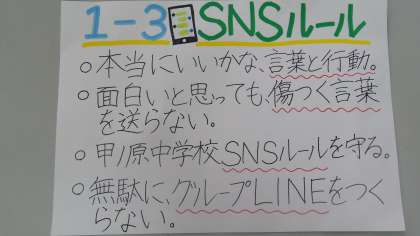 1-3 SNSルール
○本当にいいかな、言葉と行動。
○面白いと思っても、傷つく言葉
を送らない。
○甲ノ原中学校SNSルールを守る。
○無駄に、グループLINEをつく
らない。